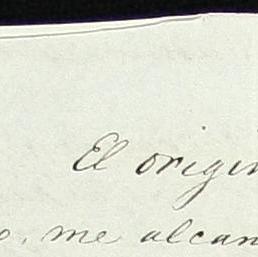 El origin
o, me alcan